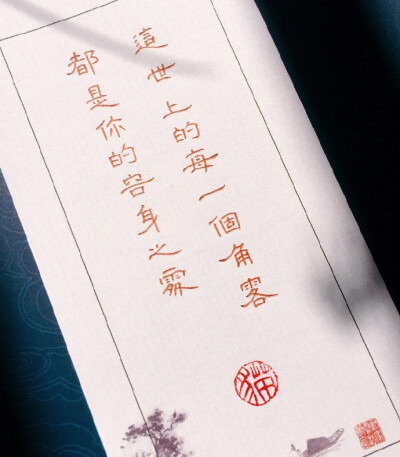 這世上的每一個角
都是你的容身之
猫